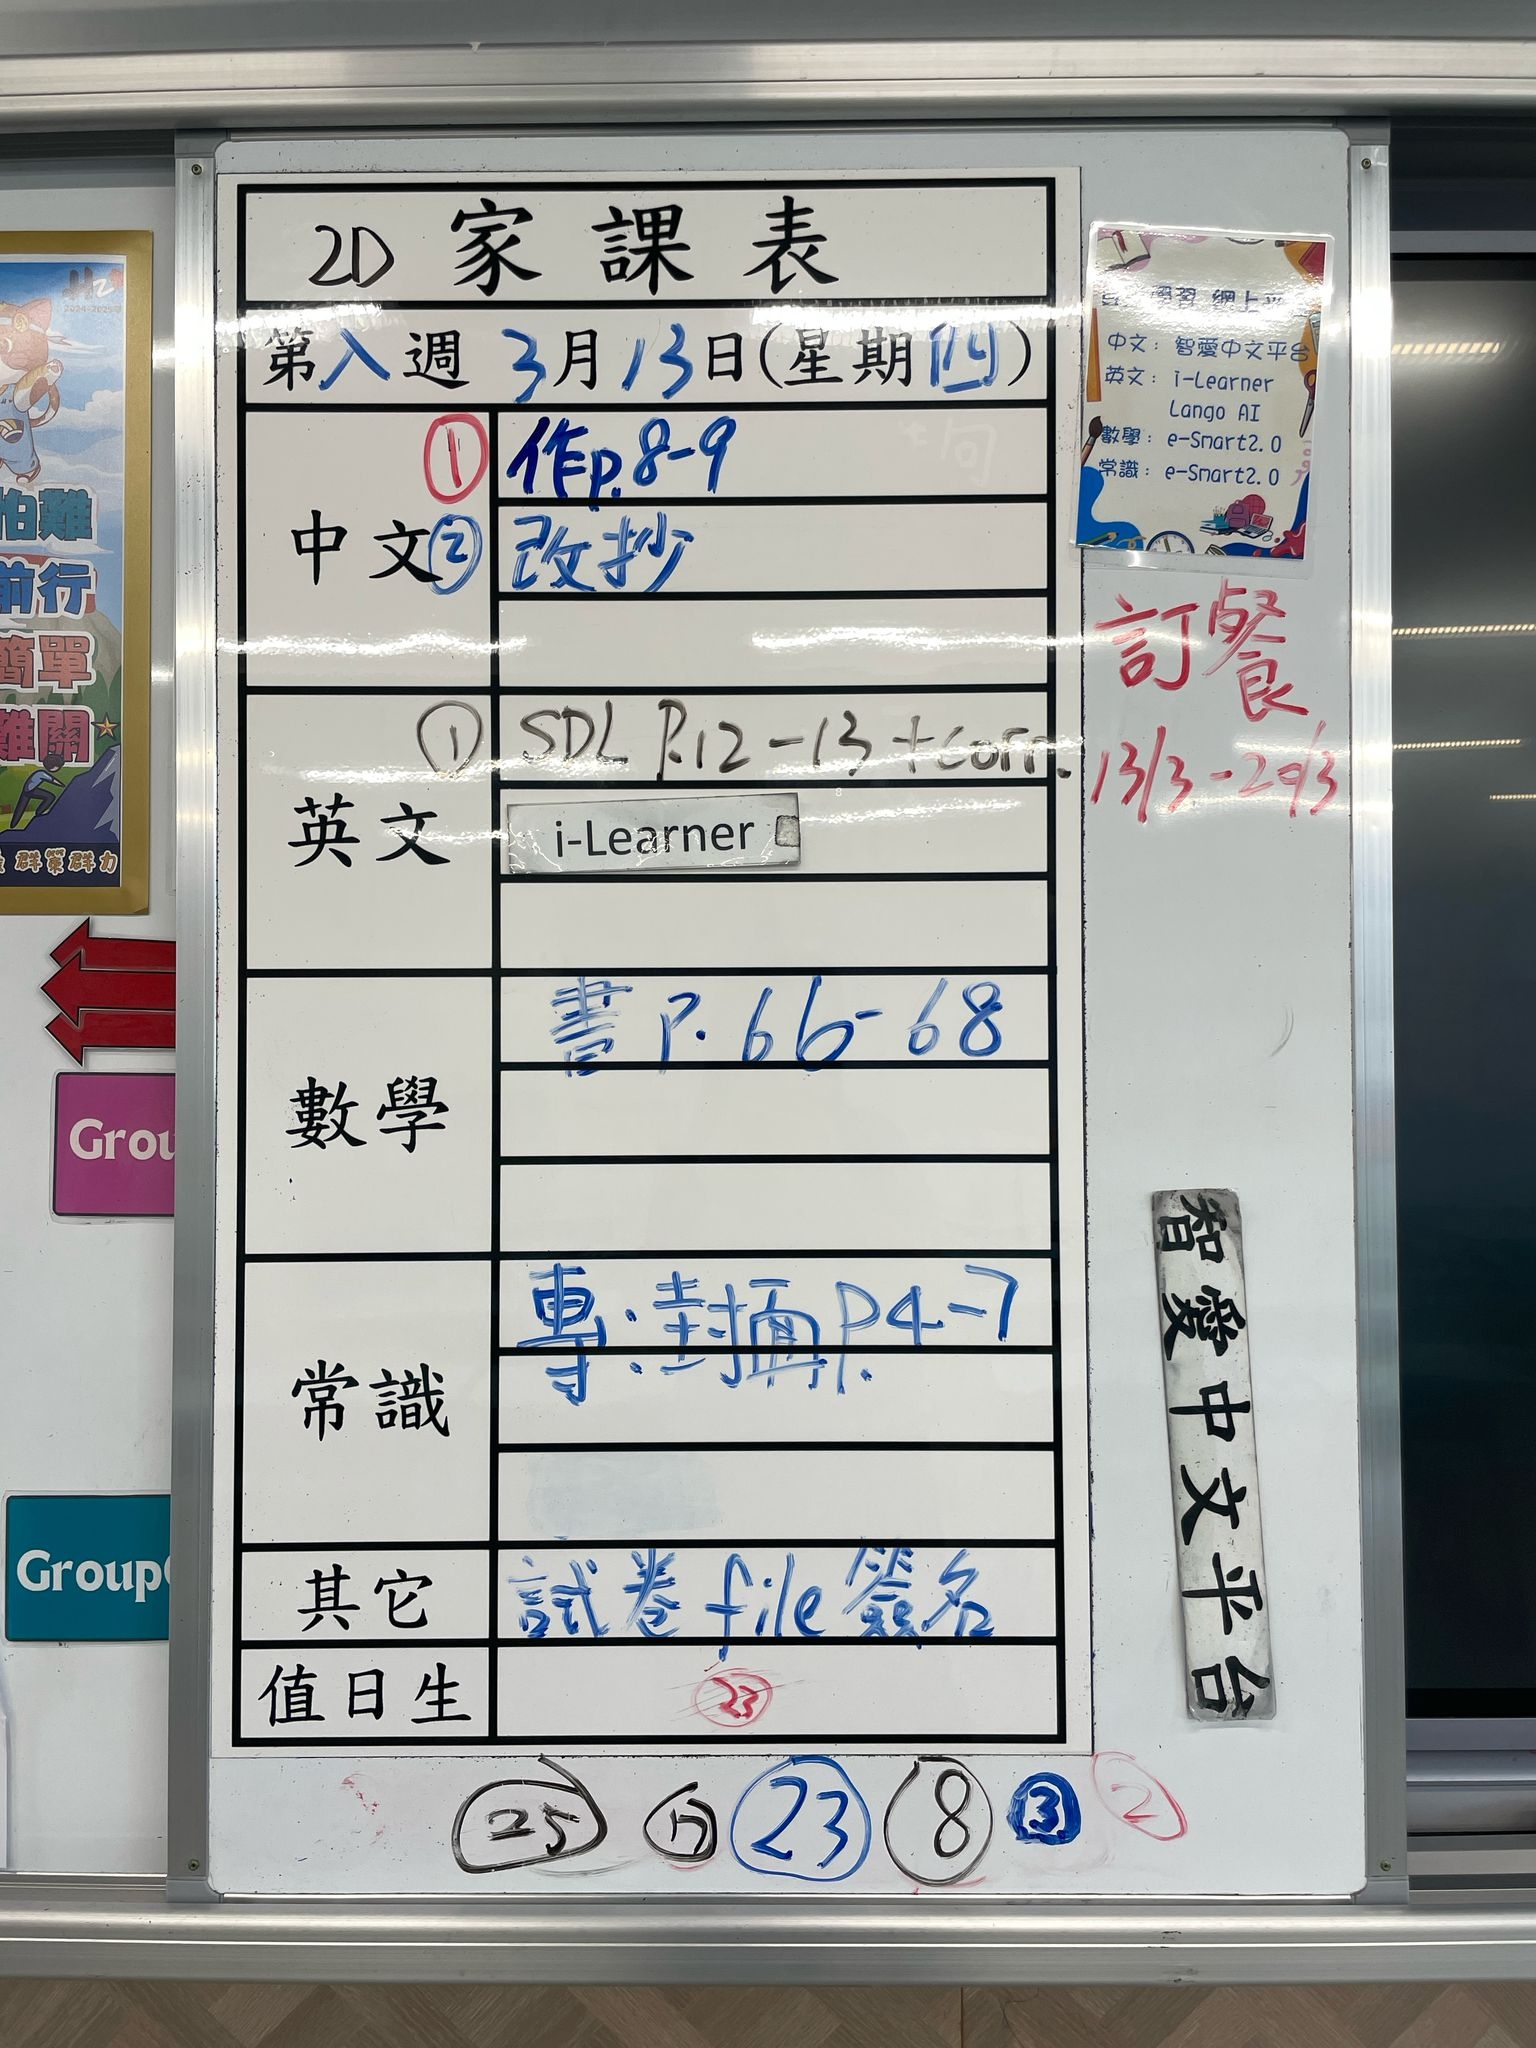 2D 家課表
第入週 3月13日(星期四)
中文
① 作p.8-9
② 改抄
英文
① SDL P.12-13+corr.
i-Learner
數學
書P.66-68
常識
專:封面P.4-7
其它
試卷file簽名
值日生
23
25 17 23 8 3 2
學習 網上
中文：智愛中文平台
英文：i-Learner
Lango AI
數學：e-Smart2.0
常識：e-Smart2.0
訂餐
13/3-20/3
智愛中文平台
2024-2025
怕難
前行
簡單
難關
群策群力
Grou
Group